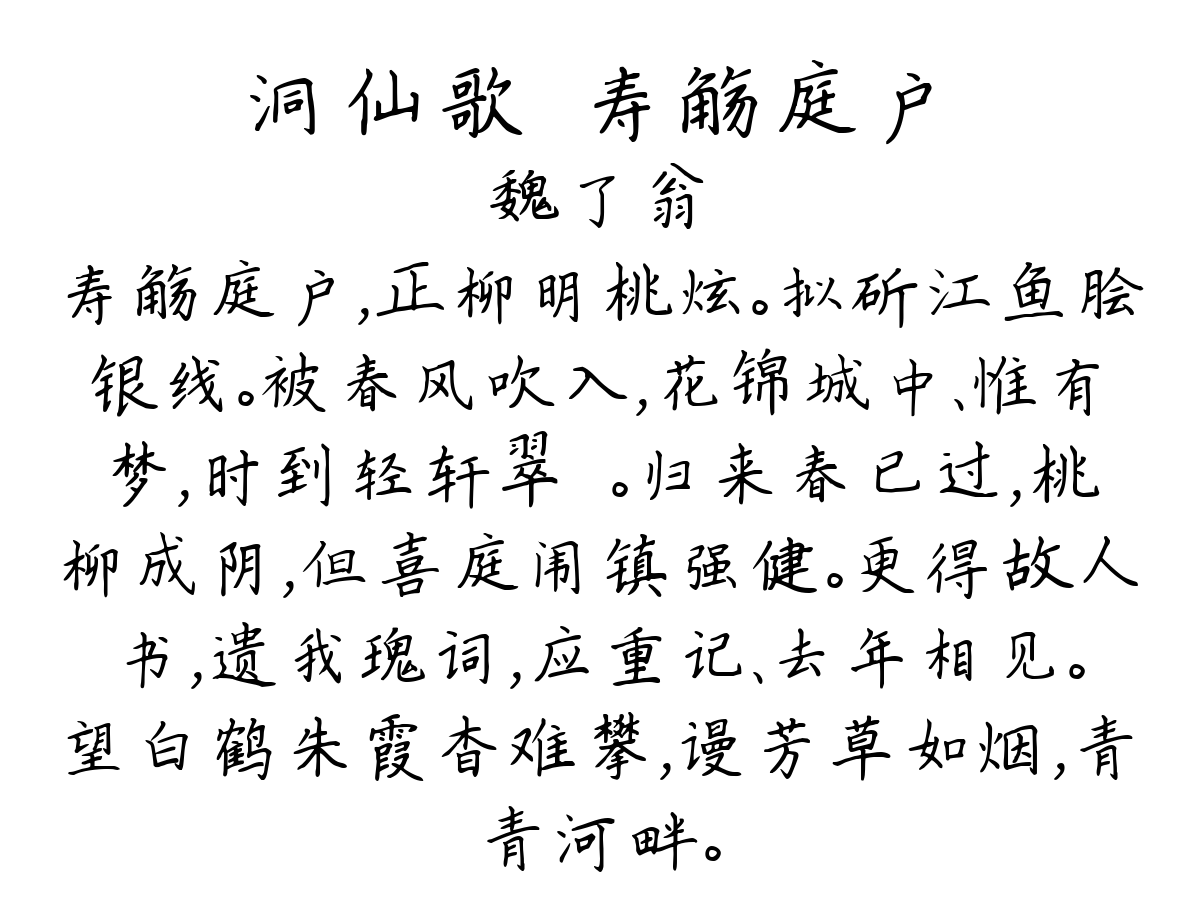 洞仙歌 寿觞庭户
魏了翁
寿觞庭户,正柳明桃炫。拟斫江鱼脍
银线。被春风吹入,花锦城中、惟有
梦,时到轻轩翠 。归来春已过,桃
柳成阴,但喜庭闹镇强健。更得故人
书,遗我瑰词,应重记、去年相见。
望白鹤朱霞杳难攀,谩芳草如烟,青
青河畔。